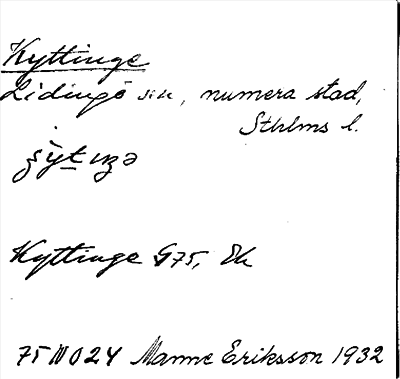 Kyttinge
Lidingö sn, numera stad,
Sthlms l.
Kyttinge G75, Ek
75 NO 24 Manne Eriksson 1932